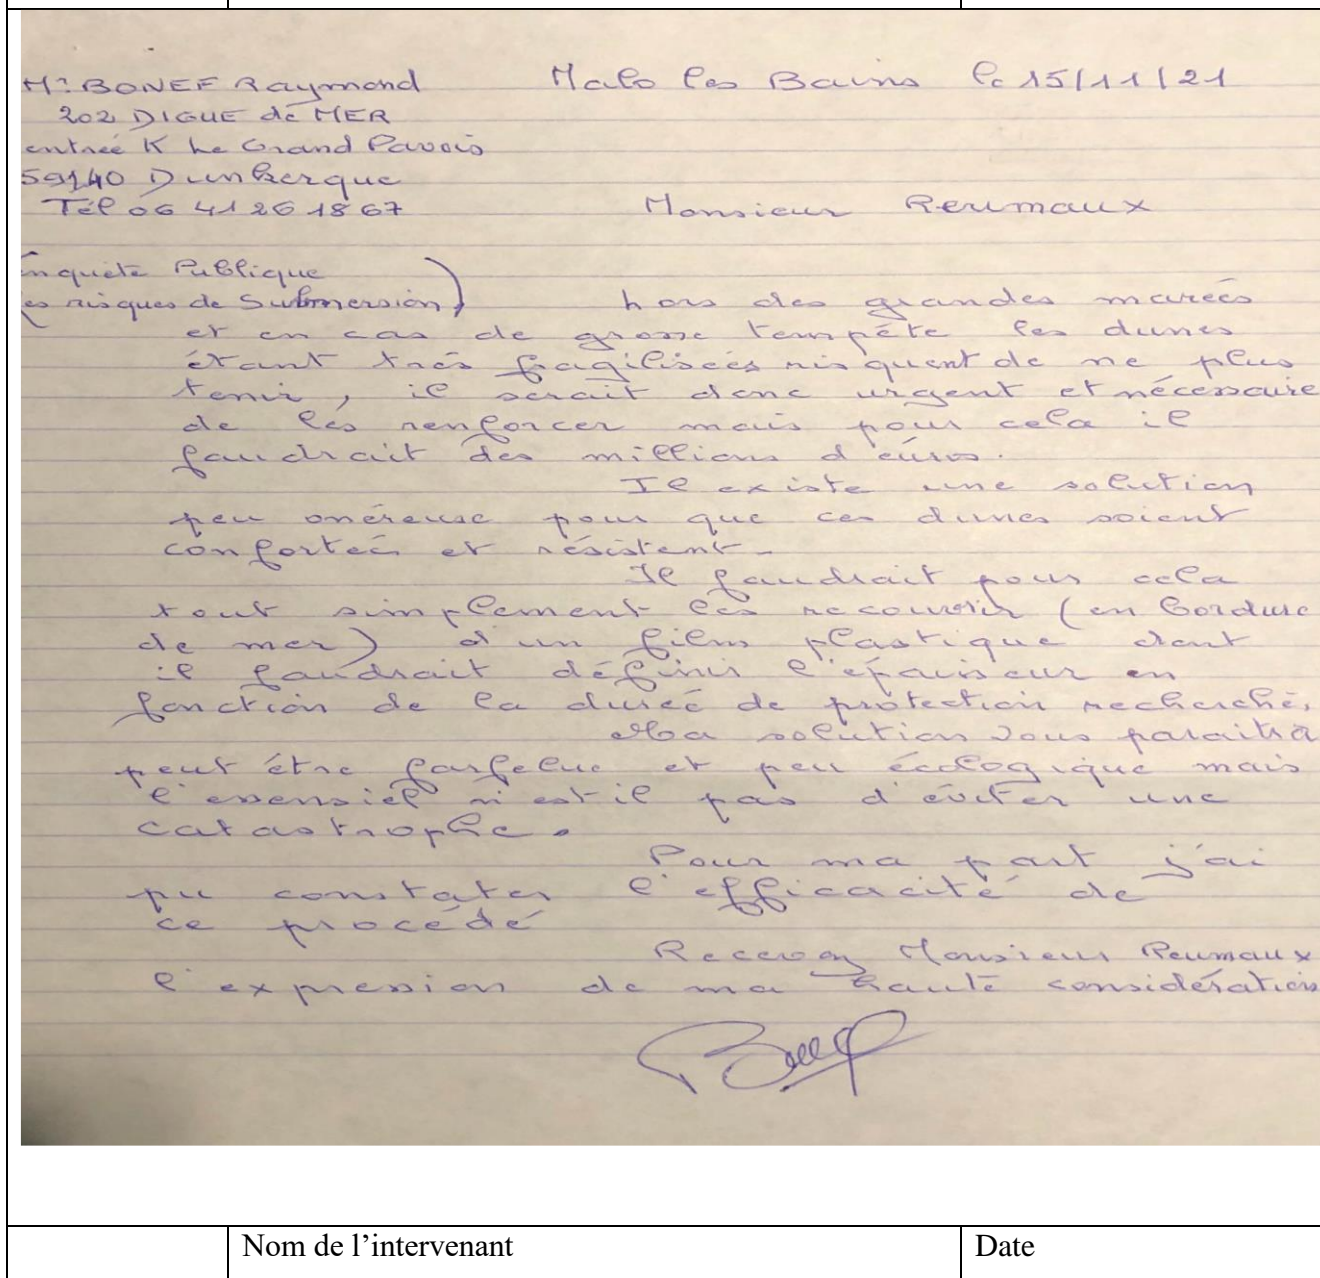 Mr BONEF Raymond Malo les Bains le 15/11/21
202 DIGUE de MER
entrée K Le Grand Pavois
59140 Dunkerque
Tél 06 41 26 18 67 Monsieur Reumaux
nquête Publique
es risques de Submersion) hors des grandes marées
et en cas de grosse tempête les dunes
étant très fragilisées risquent de ne plus
tenir, il serait donc urgent et nécessaire
de les renforcer mais pour cela il
faudrait des millions d'euros.
Il existe une solution
peu onéreuse pour que ces dunes soient
confortées et résistent.
Il faudrait pour cela
tout simplement les recouvrir (en bordure
de mer) d'un film plastique dont
il faudrait définir l'épaisseur en
fonction de la durée de protection recherché,
Ma solution vous paraîtra
peut être farfelue et peu écologique mais
l'essensiel n'est-il pas d'éviter une
catastrophe.
Pour ma part j'ai
pu constater l'efficacité de
ce procédé
Recevez Monsieur Reumaux
l'expression de ma haute considération
Nom de l'intervenant Date